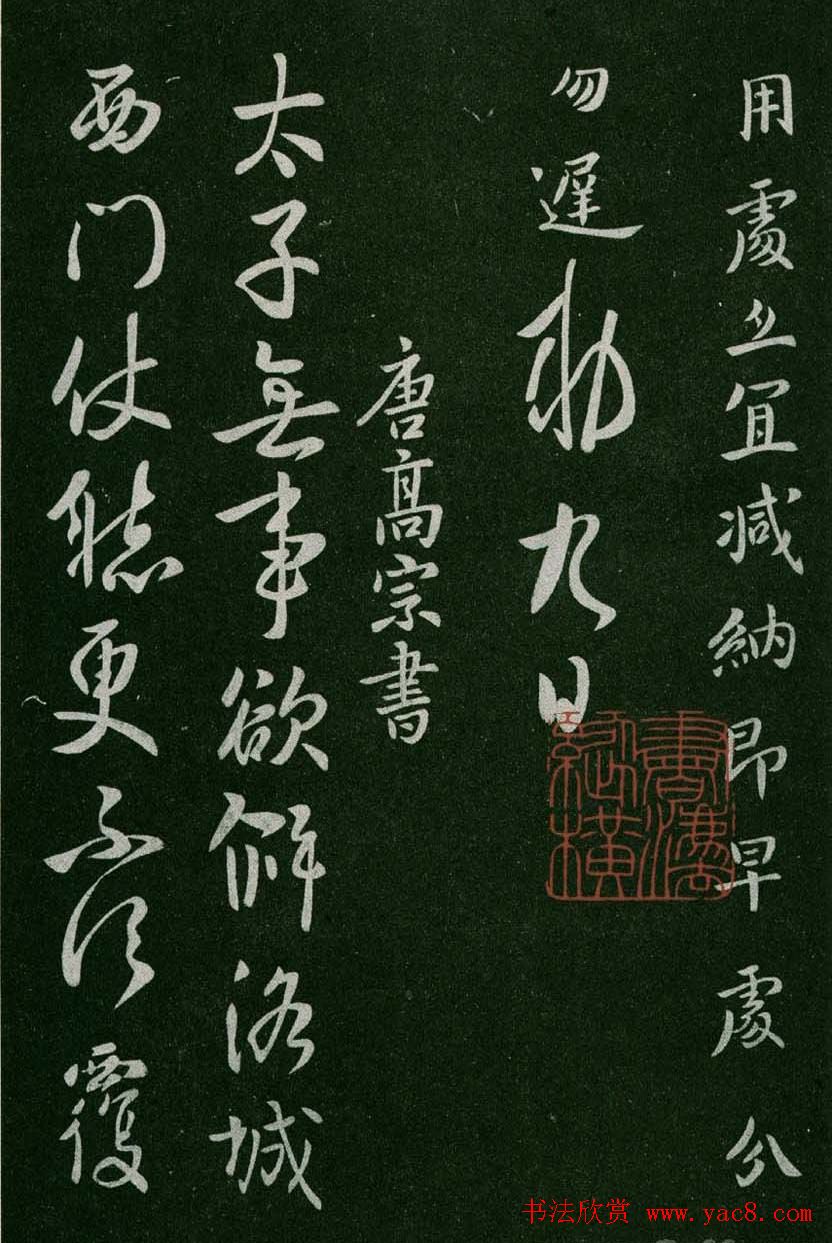 用處宜減納即早處分
勿遲勅九日
唐高宗書
太子無事欲解洛城
西門仗聽更不須覆
書法
縱橫
书法欣赏 www.yac8.com